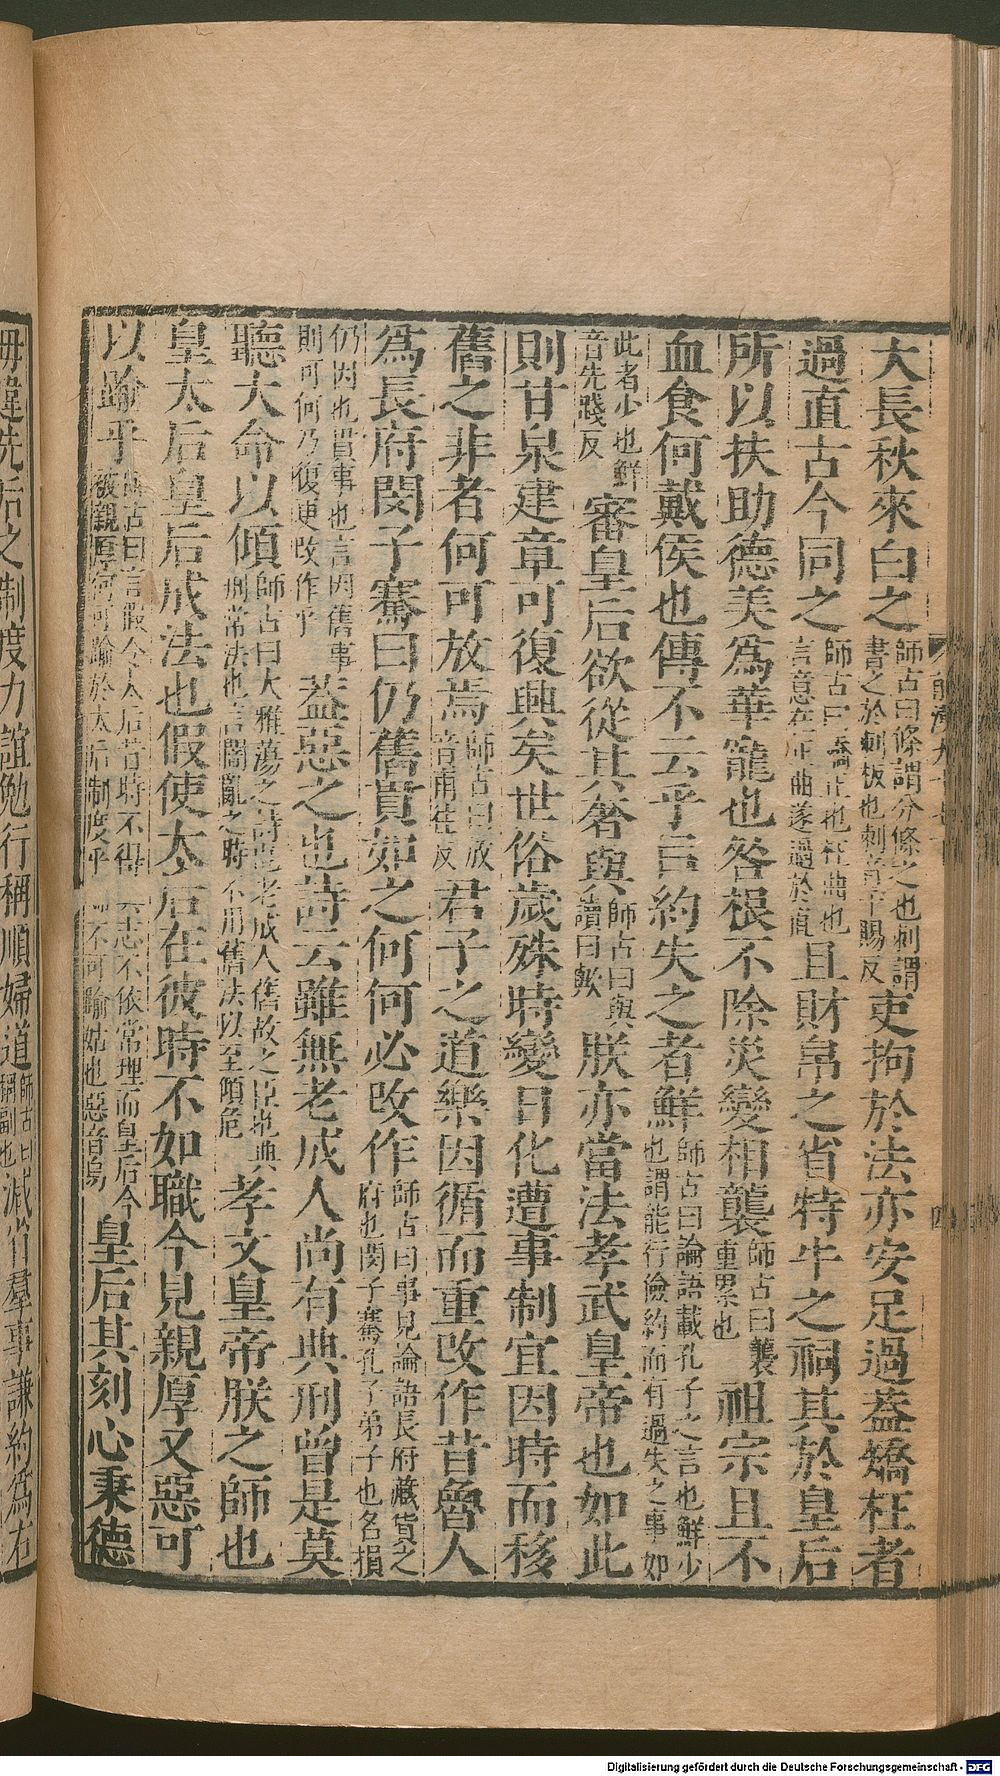 大長秋來白之師古曰條謂分條之也刺謂書之於刺板也刺音千賜反吏拘於法亦安足過蓋矯枉者
過直古今同之師古曰矯正也枉曲也言意在正曲遂過於直且財帛之省特牛之祠其於皇后
所以扶助德美為華寵也咎根不除災變相襲師古曰襲重累也祖宗且不
血食何戴侯也傳不云乎以約失之者鮮師古曰論語載孔子之言也鮮少也謂能行儉約而有過失之事如
此者少也鮮音先踐反審皇后欲從其奢與師古曰與讀曰歟朕亦當法孝武皇帝也如此
則甘泉建章可復興矣世俗歲殊時變日化遭事制宜因時而移
舊之非者何可放焉師古曰放音甫往反君子之道樂因循而重改作昔魯人
為長府閔子騫曰仍舊貫如之何何必改作師古曰事見論語長府藏貨之府也閔子騫孔子弟子也名損
仍因也貫事也言因舊事則可何乃復更改作乎蓋惡之也詩云雖無老成人尚有典刑曾是莫
聽大命以傾師古曰大雅蕩之詩也老成人舊故之臣也典刑常法也言闇亂之時不用舊法以至傾危孝文皇帝朕之師也
皇太后皇后成法也假使太后在彼時不如職今見親厚又惡可
以踰乎師古曰言假令太后昔時不得其志不依常理而皇后今被親厚何可踰於太后制度乎婦不可踰姑也惡音烏皇后其刻心秉德
毋違先后之制度力誼勉行稱順婦道師古曰稱副也減省羣事謙約為右
四
Digitalisierung gefördert durch die Deutsche Forschungsgemeinschaft - DFG